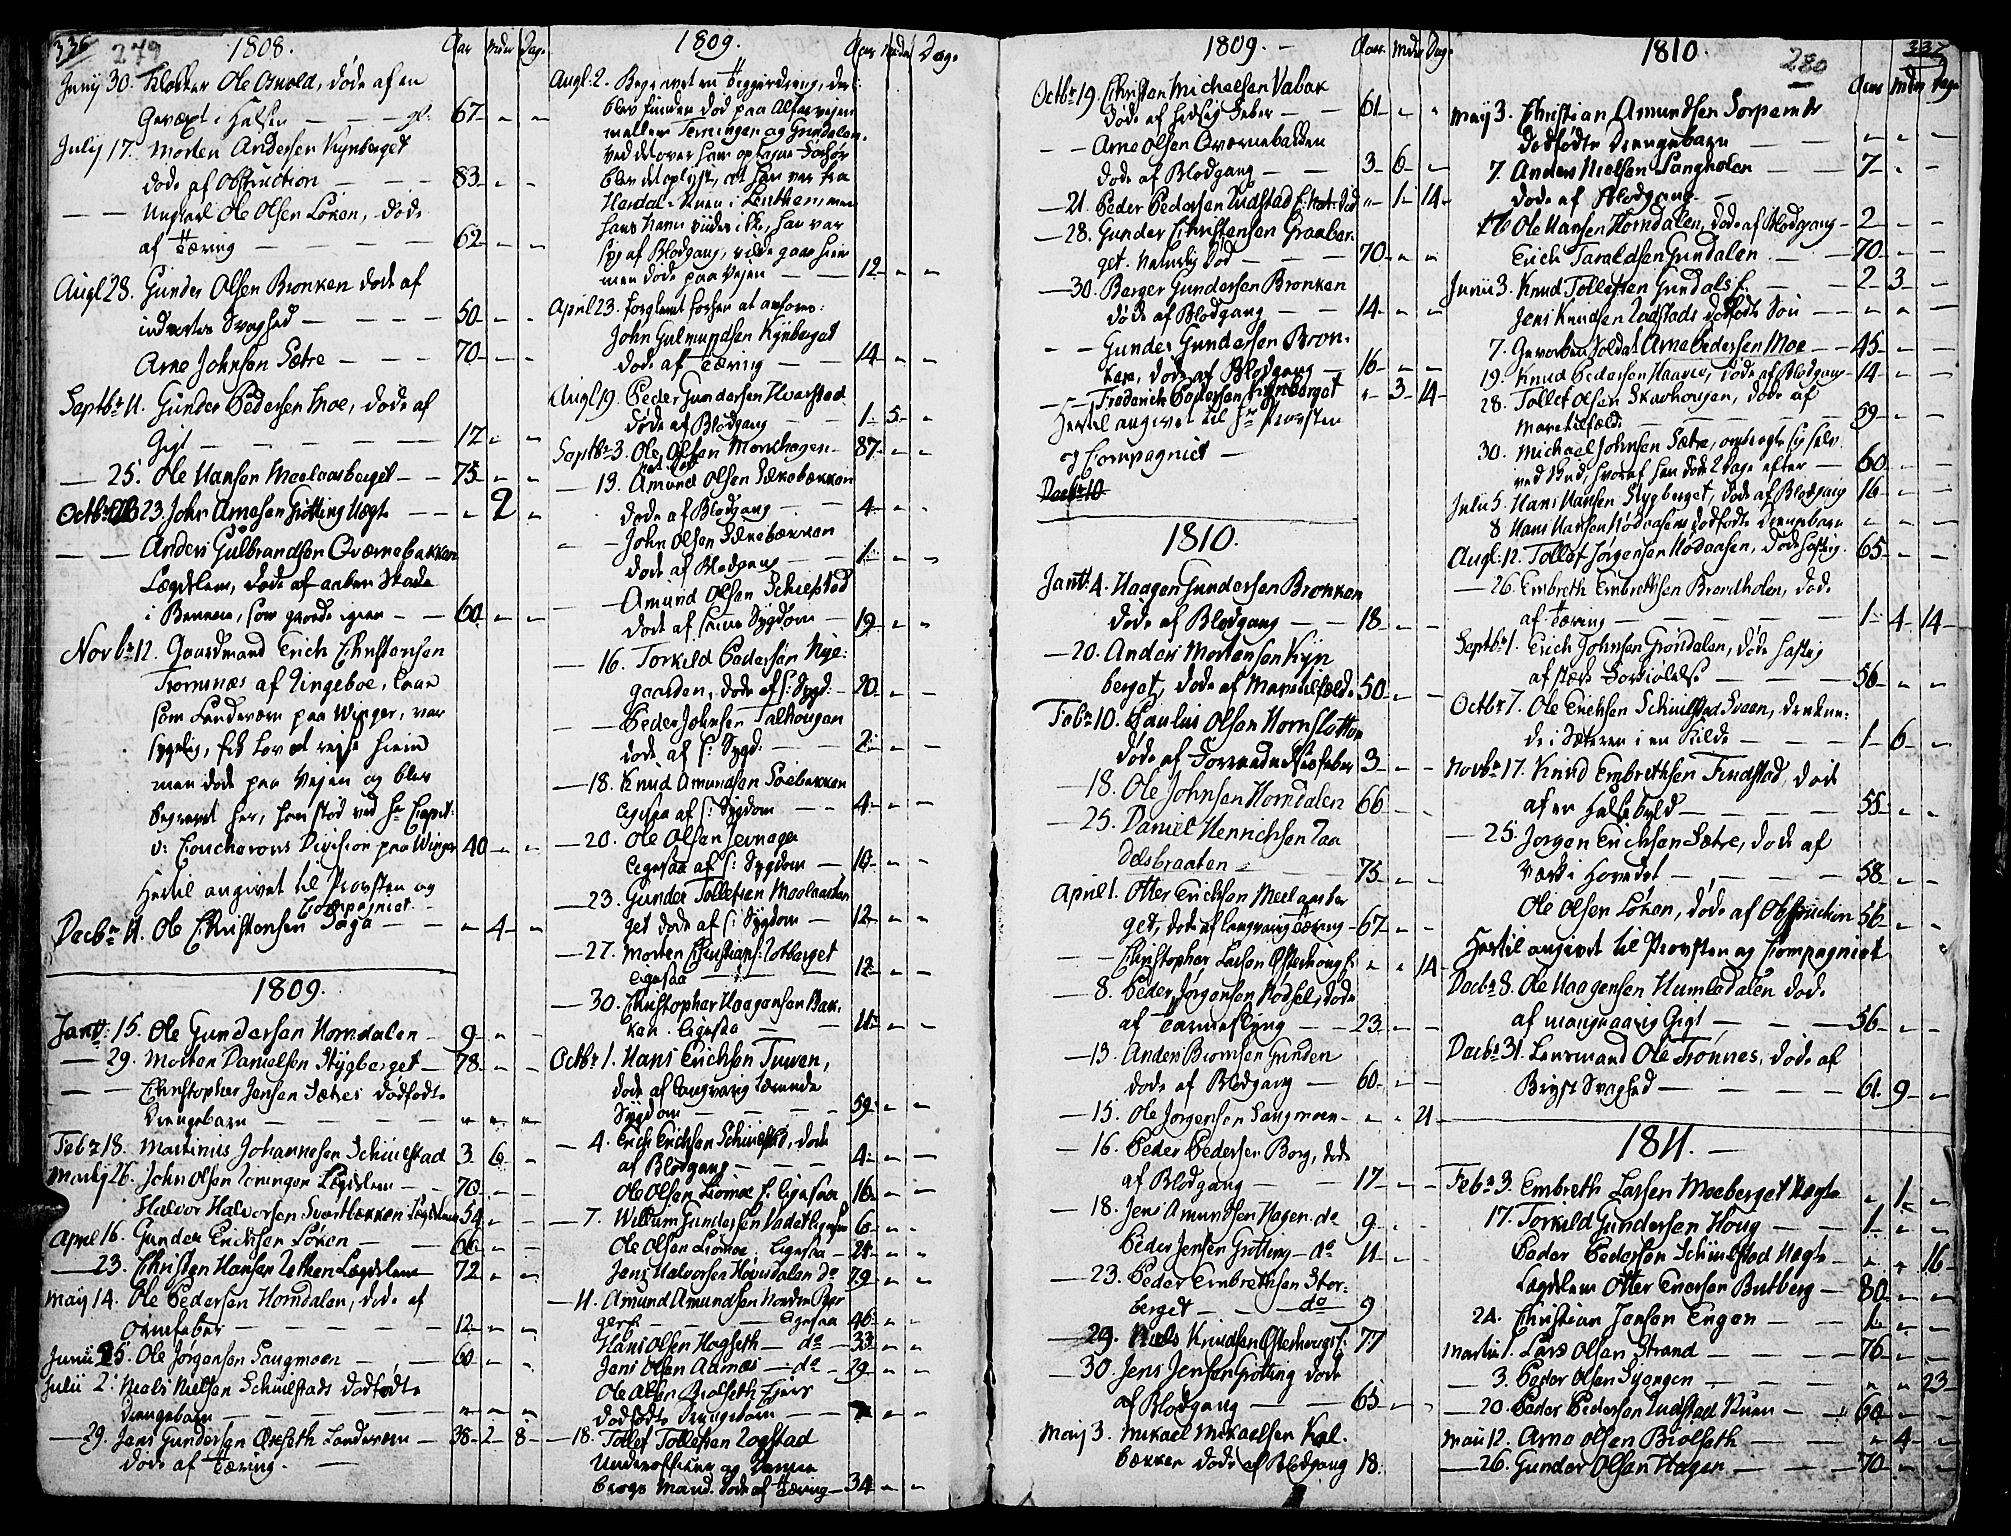 336 279
1808.
Aar Mdr Dage
Junij 30. Klokker Ole Osvold, døde af en
Gevæxt i Halsen — — — gl: 67 - -
Julij 17. Morten Andersen Kynberget
døde af Obstruction — — — 83 - -
— — Ungkarl Ole Olsen Løken, døde
af Tæring — — — — 62 - -
Augl 28. Gunder Olsen Bronken døde af
indvortes Svaghed — — — — 50 - -
Arne Johnsen Sætre — — — 70 - -
Septbr 11. Gunder Pedersen Moe, døde af
Gigt — — — — — 17 - -
— 25. Ole Hansen Meelaasberget — — 75 - -
Octbr 23 John Arnesen Grøtting Uægte — — - 2 -
— — Anders Gulbrandsen Qværnebakken
Lægdslem, døde af aaben Skade
i Benene, som groede igien — — 60 - -
Novbr 12. Gaardmand Erich Christensen
Trommæs af Ringeboe, laae
som Landeværn paa Winger, var
sygelig, fik Lov at rejse hiem
men døde paa Vejen og blev
begravet her, han stod ved Hr Capit:
v: Coucherons Division paa Winger 40 - -
Hertil angivet til Provsten og
Compagniet
Decbr 11. Ole Christensen Soga — — - 4 -
1809.
Jan: 15. Ole Gundersen Horndalen — 9 -
— 29. Morten Danielsen Stygberget — 78 - -
— — Christopher Jensen Sætres dødfødte
Drengebarn — — — — - - -
Febr 18. Martinus Johannesen Schulstad 3 6 -
Martij 26. John Olsen Lægdslem — — 70 - -
Halvor Halvorsen Svartbekken Lægdslem 54 - -
April 16. Gunder Erichsen Løken — — 66 - -
— 23. Christen Hansen Lægdslem 72 - -
Maij 14. Ole Pedersen Horndalen, døde af
— — — — — 12 - -
Junii 25. Ole Jørgensen Saugmoen — — 60 - -
Julii 2. Niels Nielsen Schulstads dødfødte
Drengebarn — — — — - - -
— 29. Jens Gundersen Landeværn — 38 - 2 - 8
døde af Tæring. —
1809.
Aar Mdr Dage
Augl: 2. Begravet en Tiggerdreng, der
blev funden død paa Alfarvejen
mellem Terningen og Grundalen,
ved det over ham optagne Forhør
blev det oplyst, at han var fra
hans Navn vides ikke, han var
syg af Blodgang, vilde gaae hiem
men døde paa Vejen — — 12 - -
April 23. forglemt forhen at anføre:
John Gulmundsen Kynberget
døde af Tæring — 14 - -
Augl 19. Peder Gundersen Hvarstad
døde af Blodgang — — 1 - 5 -
Septbr 3. Ole Olsen Mornhagen — 87 - -
— 13. Amund Olsen Ilkebækken
døde af Blodgang — 4 - -
— — John Olsen Ilkebækken
døde af Blodgang — 1 - -
— — Amund Olsen Schulstad
døde af samme Sygdom — 19 - -
— 16. Torkild Pedersen Nye:
gaarden, døde af s: Sygd: — 20 - -
— — Peder Johnsen Talhougen
døde af s: Sygd: — — 2 - -
— 18. Knud Amundsen Soebakken
ligesaa af s: Sygdom — — 4 - -
— 20. Ole Olsen
ligesaa af s: Sygdom — 10 - -
— 23. Gunder Tollefsen Meelaasber
get døde af s: Sygdom — 12 - -
— 27. Morten Christians: Lotberget
ligesaa — — 12 - -
— 30. Christopher Haagensen Bak:
ken ligesaa — — 11 - -
Octbr 1. Hans Erichsen Tuven,
døde af langvarig tærende
Sygdom — — — — 59 - -
— 4. Erich Erichsen Schulstad, døde
af Blodgang — — — 4 - -
Ole Olsen Liomoe s: ligesaa 16 - -
— 7. Willum Gundersen ligesaa 6 - -
Ole Olsen Liomoe, ligesaa — 21 - -
Jens Halvorsen do 79 - -
— 11. Amund Amundsen
— — — ligesaa 46 - -
Hans Olsen Hagseth — do — 33 - -
Jens Olsen Aamæs — do — 29 - -
Ole Biolseth
dødfødte Drengebarn — — - -
— 18. Tollef Tollefsen Logstad
Underofficier og
brogs Mand. døde af Tæring — 34 - -
1809. —
Aar Mdr Dage
Octbr 19. Christen Michaelsen Vabak
døde af hidsig Feber — — 61 - -
— — Arne Olsen Qværnebakken
døde af Blodgang — — 3 6 -
— 21. Peder Pedersen Rudstad - 1 - 14
— 28. Gunder Christensen Graaber:
get. Naturlig Død — — — 70 - -
— 30. Berger Gundersen Bronken
døde af Blodgang — — 14 - -
— — Gunder Gundersen Bron:
ken, døde af Blodgang — 16 - -
— — Frederich Pedersen Kynberget - 3 14
Hertil angivet til Hr Provsten
og Compagniet —
Decbr 10
1810.
Jan: 4. Haagen Gundersen Bronken
døde af Blodgang — — 18 - -
— 20. Anders Mortensen Kyn
berget, døde af Marsvilfælde 50 - -
Feb: 10. Paulus Olsen Hornsletten
døde af Forraadnelsesfeber 3 - -
— 18. Ole Johnsen Horndalen 66 - -
— 25. Daniel Henrichsen Taa
delsbraaten — 75 - -
April 1. Otter Erichsen Meelaasber
get, døde af langvarig Tæring 67 - -
— — Christopher Larsen Østerhougs: - - 14
— 8. Peder Jørgensen Rødsel, døde
af Tarmeslyng — — 23 - -
— 13. Anders Biørnsen Grunden
døde af Blodgang — 60 - -
— 15. Ole Jørgensen Saugmoen - - 21
— 16. Peder Pedersen Borg, døde
af Blodgang — — 17 - -
— 18. Jens Amundsen Hagen. do 9 - -
Peder Jensen Grøtting — do 11 - -
— 23. Peder Embrethsen Stor:
berget — — do 9
— 29. Niels Knudsen Østerhougs: 77
— 30. Jens Jensen Grøtting døde
af Blodgang — — 65 - -
Maij 3. Mikael Mikaelsen Kal:
bækken døde af Blodgang 18.
1810.
280 337
Aar Mdr Dage
Maij 3. Christian Amundsen Sorperuds
dødfødte Drengebarn — — - - -
7. Anders Nielsen Langholen — 7 - -
døde af Blodgang —
16 Ole Hansen Horndalen, døde af Blodgang — 2 - -
Erich Taraldsen Grundalen — — 70 - -
Junii 3. Knud Tollefsen Grundals: — — 2 - 3 -
Jens Knudsen Rudstads dødfødte Søn — - - -
7. Geworben Soldat Arne Pedersen Moe — 45 - -
19. Knud Pedersen Haaver, døde af Blodgang 14 - -
28. Tollef Olsen Skovhougen, døde af
Marsvilfælde — — — 59 - -
30. Michael Johnsen Sætre, ombragte sig selv
ved Skud, hvoraf han døde 2 dage efter — 60 - -
Julii 5. Hans Hansen Stygberget, døde af Blodgang 16 - -
8 Hans Hansen Nødaasens dødfødte Drengebarn - - -
Augl: 12. Tollef Jørgensen Nødaasen, døde hastig. 65 - -
— 26. Embreth Embrethsen Brandholen, døde
af Tæring — — — — 1 - 4 14
Septbr 1. Erich Johnsen Grøndalen, døde hastig
af stærk Forkiølelse — — — 56 - -
Octbr 7. Ole Erichsen Schulstad Sveen, drukne:
de i Sæteren i en Kilde — — 1 - 6 -
Novbr 17. Knud Embrethsen Findstad, døde
af en Halsbyld — — — 55 - -
— 25. Jørgen Erichsen Sætre, døde af
Værk i Hovedet — — — 58 - -
Ole Olsen Løken, døde af Obstruction 56 - -
Hertil angivet til Provsten og Compagniet
Decbr 8. Ole Haagensen Humledalen døde
af mangeaarig Gigt — — — 56 - -
Decbr 31. Lensmand Ole Trønnes, døde af
Bryst Svaghed — — — 61 - 9 -
1811. —
Febr 3. Embreth Larsen Moeberget Uægte - 1 -
17. Torkild Gundersen Houg — — 1 - -
Peder Pedersen Schulstad Uægte - - 16
Lægdslem Otter Enersen Butberg — 80 - -
24. Christian Jensen Engen — — 1 - -
Martii 1. Lars Olsen Strand — — — 76 - -
— 3. Peder Olsen — — — - - 23
— 20. Peder Pedersen Rudstad — 60 - -
Maii 12. Arne Olsen Biolseth — — - 4 -
— 26. Gunder Olsen Hagen — — — 70 - -